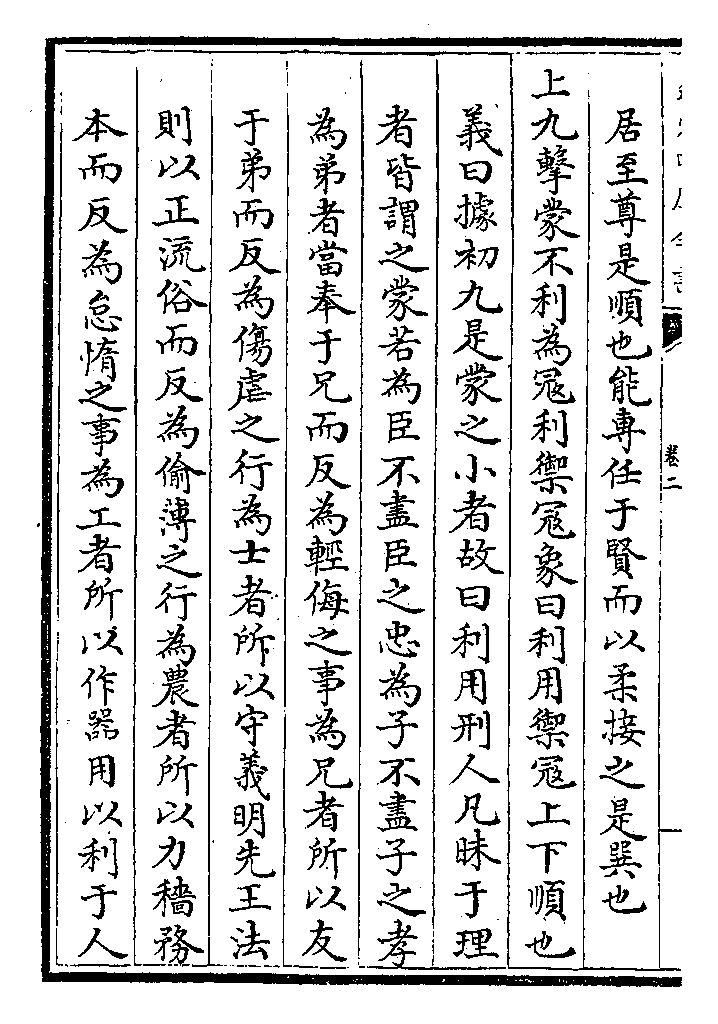 居至尊是順也能專任于賢而以柔接之是巽也
上九擊蒙不利為冦利禦冦象曰利用禦冦上下順也
義曰據初九是蒙之小者故曰利用刑人凡昧于理
者皆謂之蒙若為臣不盡臣之忠為子不盡子之孝
為弟者當奉于兄而反為輕侮之事為兄者所以友
于弟而反為傷虐之行為士者所以守義明先王法
則以正流俗而反為偷薄之行為農者所以力穡務
本而反為怠惰之事為工者所以作器用以利于人
卷二